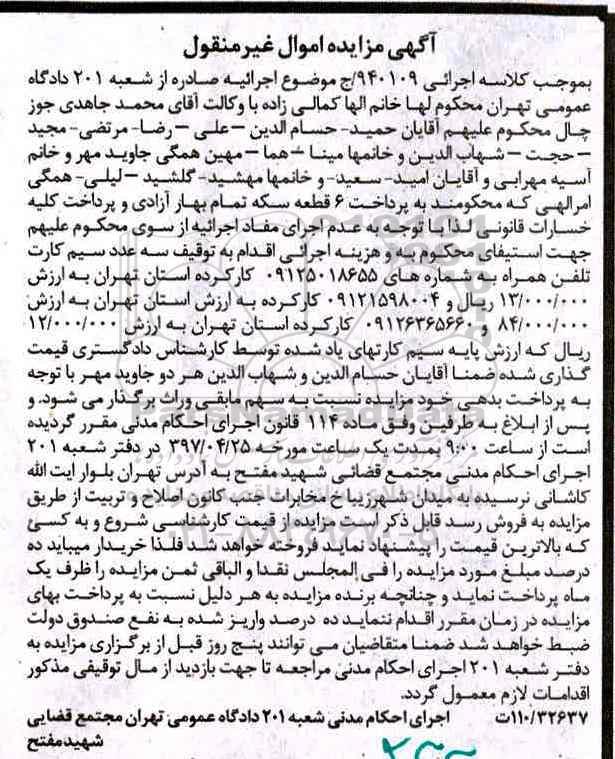 آگهی مزایده اموال غیرمنقول
بموجب کلاسه اجرائی ۹۴۰۱۰۹/ج موضوع اجرائیه صادره از شعبه ۲۰۱ دادگاه
عمومی تهران محکوم لها خانم الها کمالی زاده با وکالت آقای محمد جاهدی جوز
چال محکوم علیهم آقایان حمید- حسام الدین –علی – رضا- مرتضی- مجید
– حجت – شهاب الدین و خانمها مینا –هما – مهین همگی جاوید مهر و خانم
آسیه مهرابی و آقایان امید- سعید- و خانمها مهشید- گلشید –لیلی- همگی
امرالهی که محکومند به پرداخت ۶ قطعه سکه تمام بهار آزادی و پرداخت کلیه
خسارات قانونی لذا با توجه به عدم اجرای مفاد اجرائیه از سوی محکوم علیهم
جهت استیفای محکوم به و هزینه اجرائی اقدام به توقیف سه عدد سیم کارت
تلفن همراه به شماره های ۰۹۱۲۵۰۱۸۶۵۵ کارکرده استان تهران به ارزش
۱۳/۰۰۰/۰۰۰ ریال و ۰۹۱۲۱۵۹۸۰۰۴ کارکرده به ارزش استان تهران به ارزش
۸۴/۰۰۰/۰۰۰ و ۰۹۱۲۶۳۶۵۶۶۰ کارکرده استان تهران به ارزش ۱۲/۰۰۰/۰۰۰
ریال که ارزش پایه سیم کارتهای یاد شده توسط کارشناس دادگستری قیمت
گذاری شده ضمنا آقایان حسام الدین و شهاب الدین هر دو جاوید مهر با توجه
به پرداخت بدهی خود مزایده نسبت به سهم مابقی وراث برگذار می شود. و
پس از ابلاغ به طرفین وفق ماده ۱۱۴ قانون اجرای احکام مدنی مقرر گردیده
است از ساعت ۹:۰۰ بمدت یک ساعت مورخه ۳۹۷/۰۴/۲۵ در دفتر شعبه ۲۰۱
اجرای احکام مدنی مجتمع قضائی شهید مفتح به آدرس تهران بلوار ایت الله
کاشانی نرسیده به میدان شهرزیبا خ مخابرات جنب کانون اصلاح و تربیت از طریق
مزایده به فروش رسد قابل ذکر است مزایده از قیمت کارشناسی شروع و به کسی
که بالاترین قیمت را پیشنهاد نماید فروخته خواهد شد فلذا خریدار میباید ده
درصد مبلغ مورد مزایده را فی المجلس نقدا و الباقی ثمن مزایده را ظرف یک
ماه پرداخت نماید و چنانچه برنده مزایده به هر دلیل نسبت به پرداخت بهای
مزایده در زمان مقرر اقدام ننماید ده درصد واریز شده به نفع صندوق دولت
ضبط خواهد شد ضمنا متقاضیان می توانند پنج روز قبل از برگزاری مزایده به
دفتر شعبه ۲۰۱ اجرای احکام مدنی مراجعه تا جهت بازدید از مال توقیفی مذکور
اقدامات لازم معمول گردد.
۱۱۰/۳۲۶۳۷ت اجرای احکام مدنی شعبه ۲۰۱ دادگاه عمومی تهران مجتمع قضایی
شهید مفتح
ParsNamadData